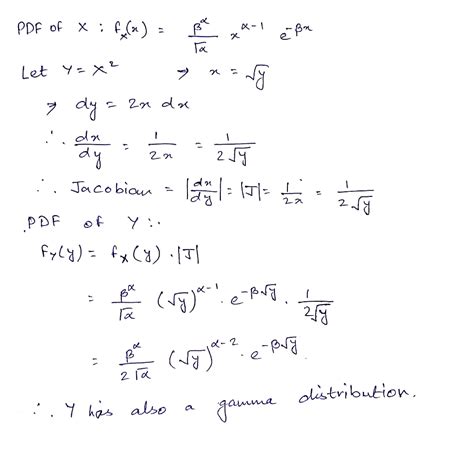 PDF of X : fₓ(x) = β^α / Γα x^(α-1) e^(-βx)
Let Y = X² ⇒ x = √y
⇒ dy = 2x dx
∴ dx/dy = 1/2x = 1/2√y
∴ Jacobian = |dx/dy| = |J| = 1/2x = 1/2√y
PDF of Y :.
f_Y(y) = f_X(y) · |J|
= β^α / Γα (√y)^(α-1) · e^(-β√y) · 1/2√y
= β^α / 2Γα (√y)^(α-2) · e^(-β√y)
∴ Y has also a gamma distribution.